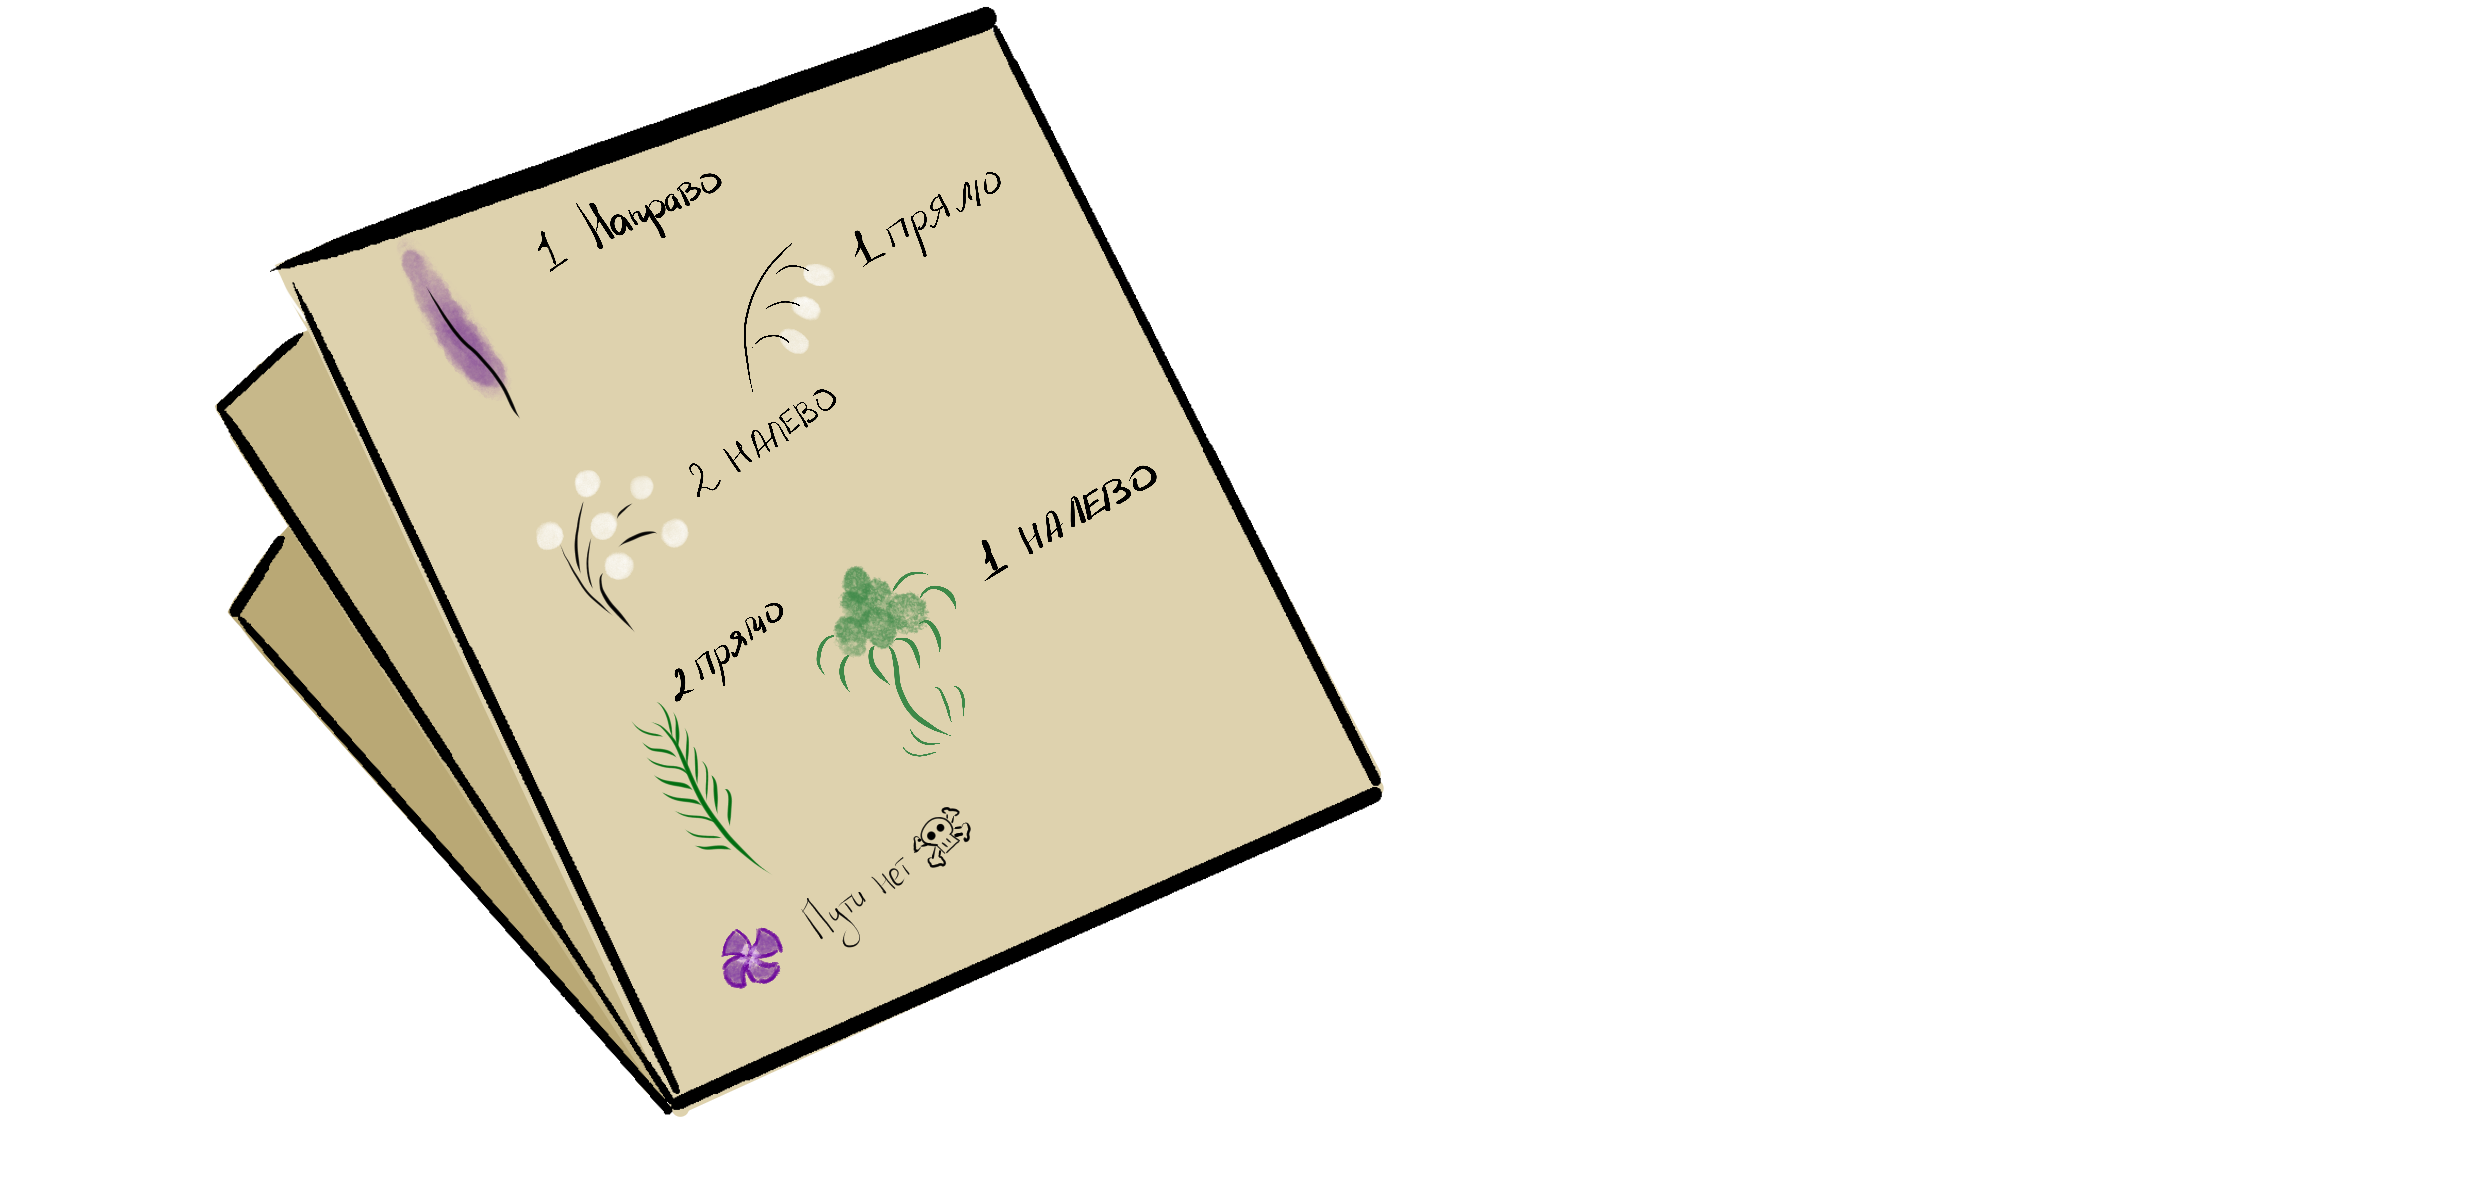 1 Направо
1 прямо
2 налево
1 налево
2 прямо
Пути нет